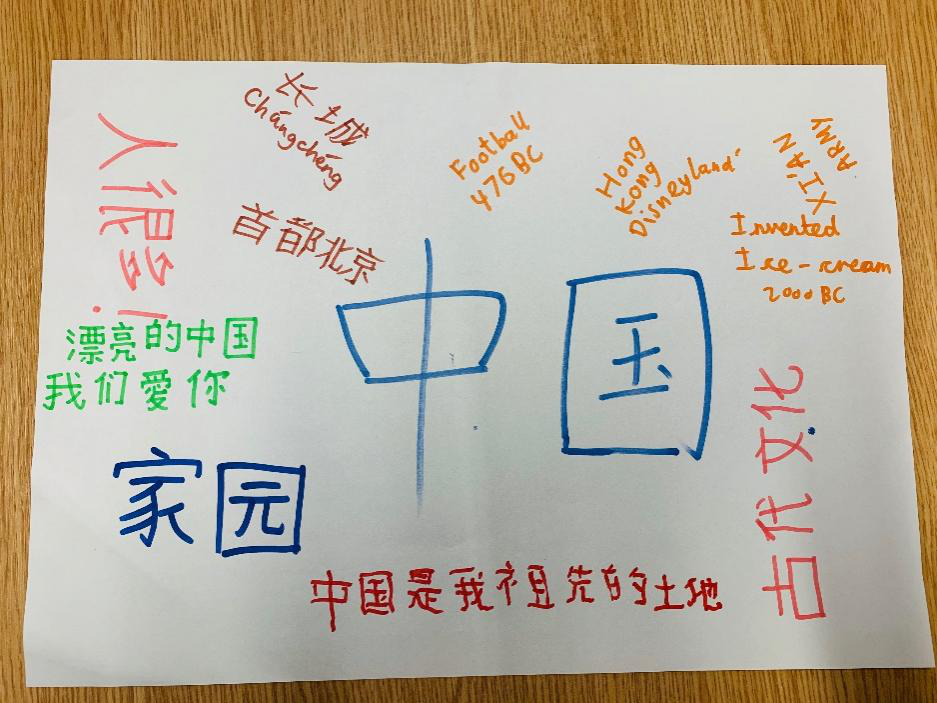 长城
Chángchéng
首都北京
Football
476BC
Hong
Kong
Disneyland
XI'AN
ARMY
Invented
Ice-cream
2000 BC
人很多!
漂亮的中国
我们爱你
中国
家园
古代文化
中国是我祖先的土地